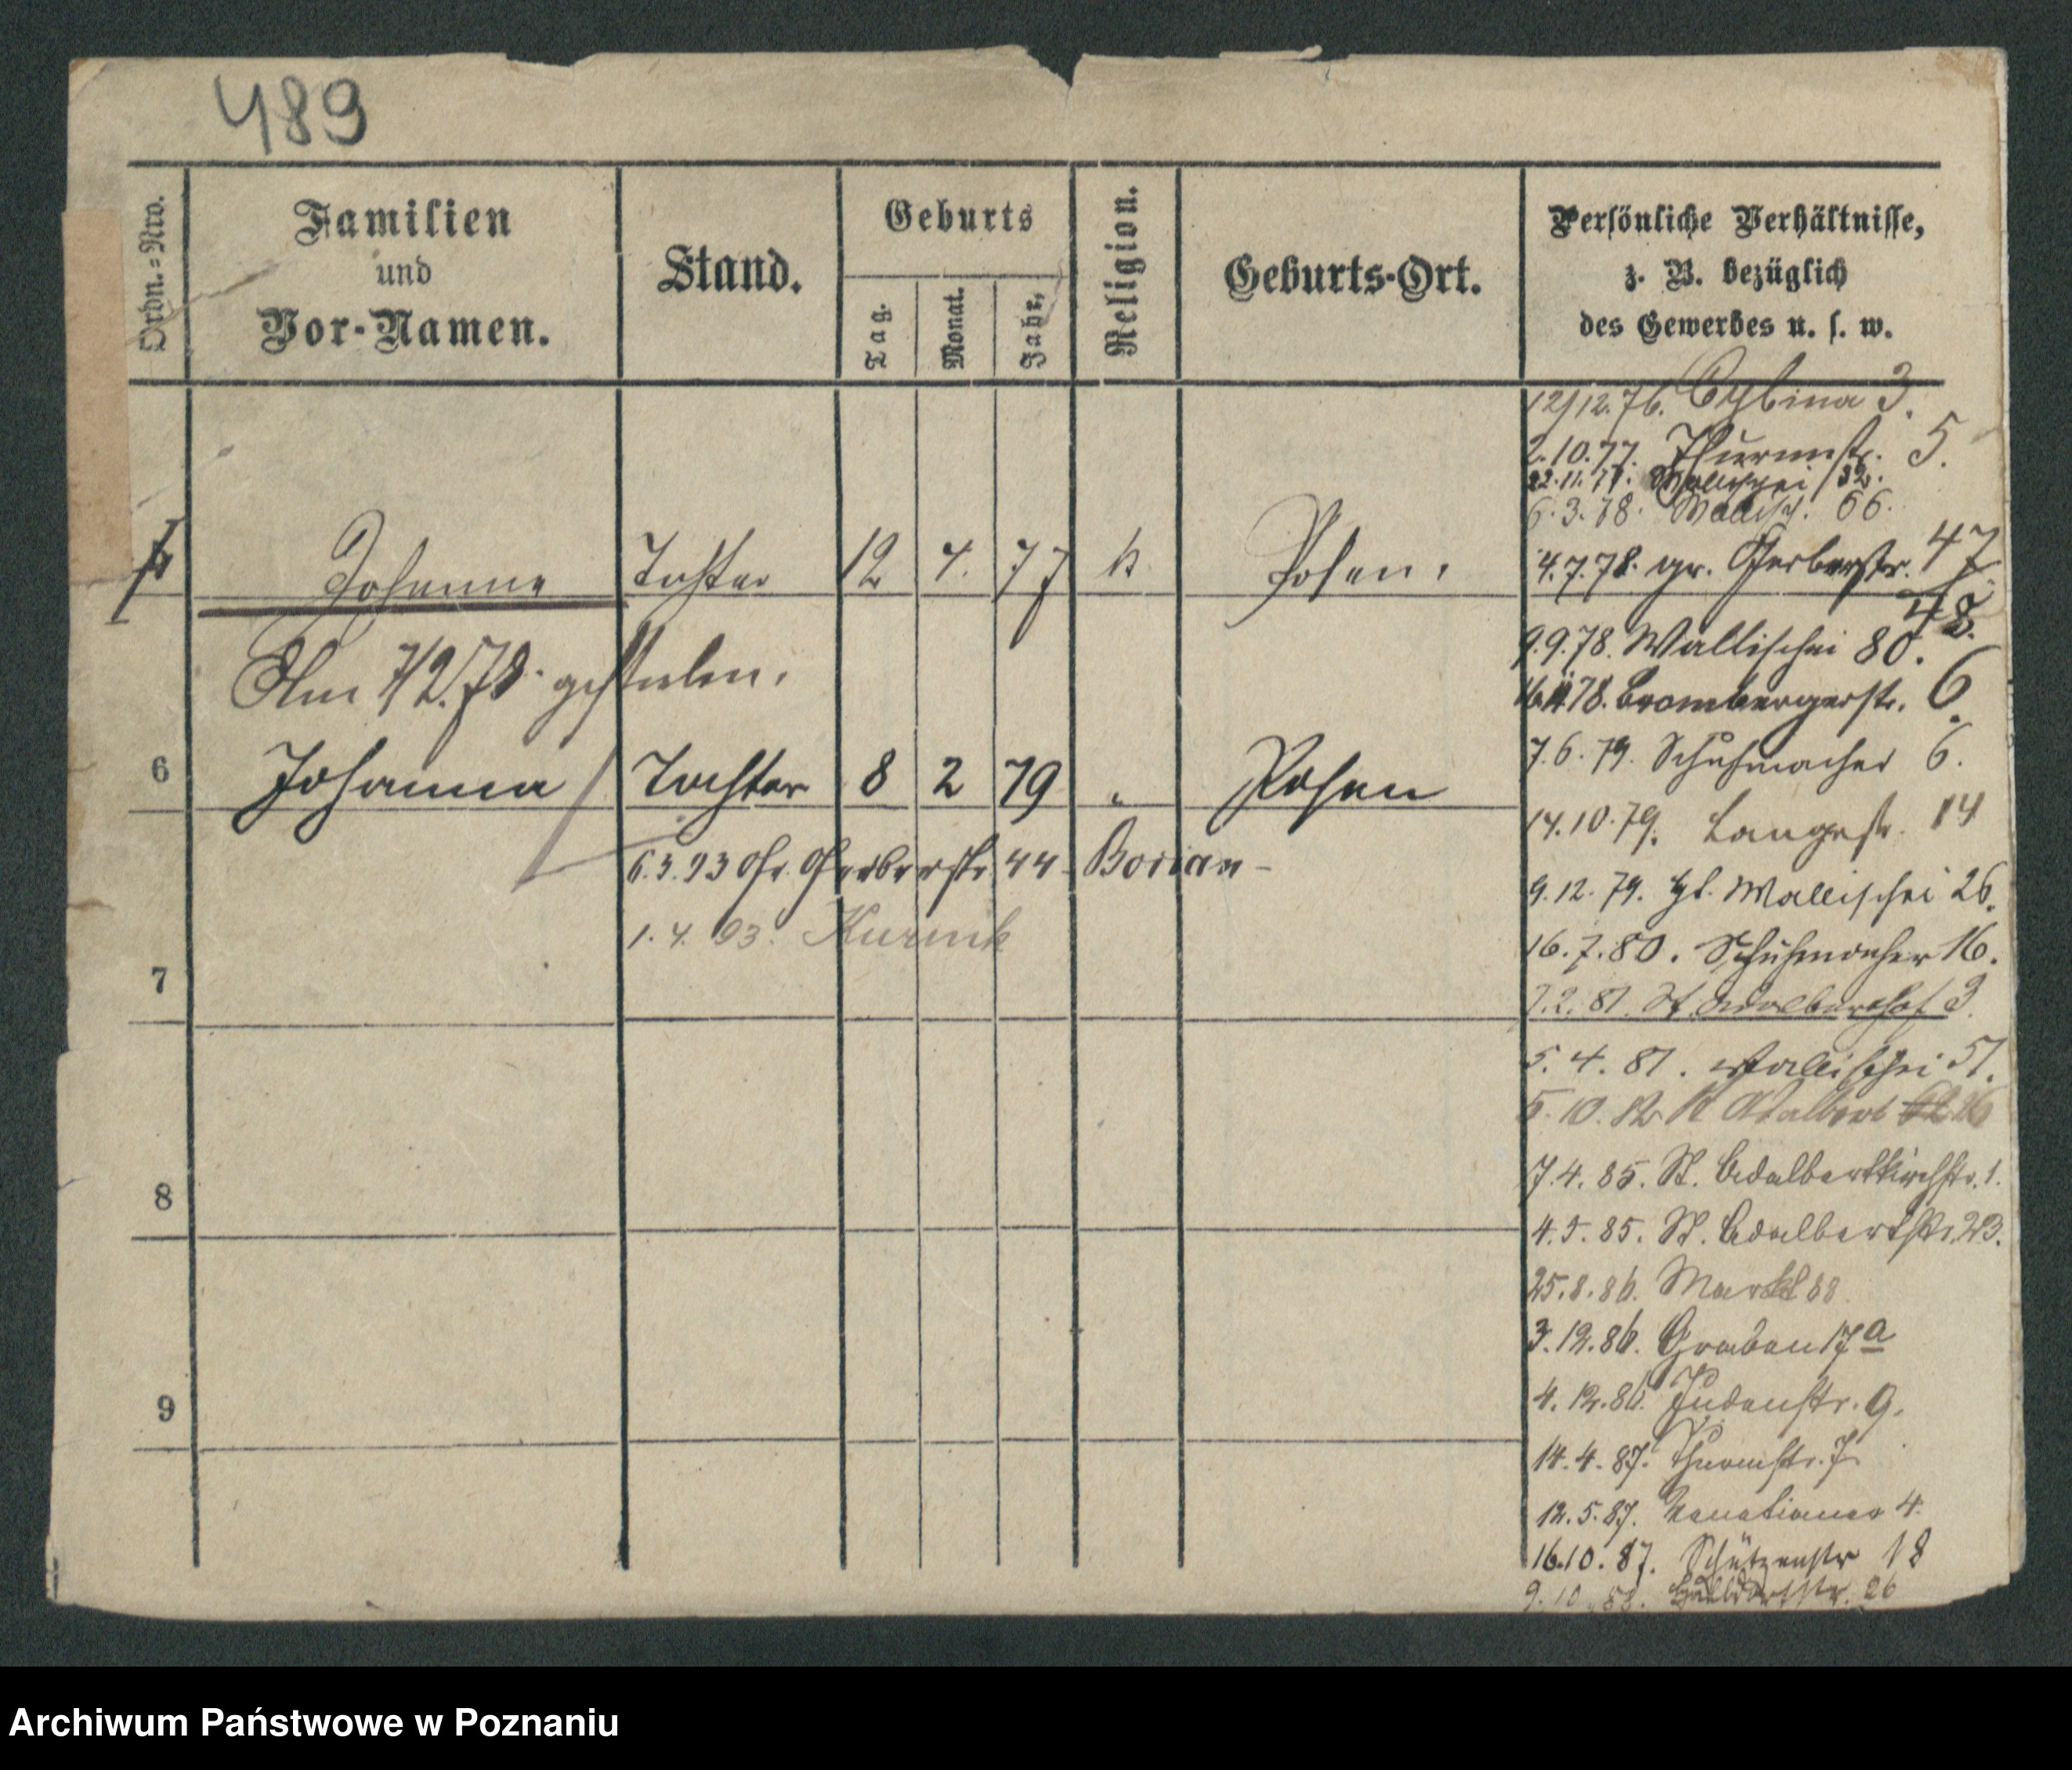 489
Ordn.=Nro.
Familien
und
Vor-Namen.
Stand.
Geburts
Tag.
Monat.
Jahr.
Religion.
Geburts-Ort.
Persönliche Verhältnisse,
z. B. bezüglich
des Gewerbes u. s. w.
12/12.76. Cybina 3.
2.10.77. Thurmstr. 5.
22.11.77. Wallischei 32.
6.3.78. Wallisch. 66.
Johanna Tochter 12 4. 77 k Posen.
4.7.78. gr. Gerberstr. 47
48.
Am 7/2.78. gestorben.
9.9.78. Wallischei 80.
16.11.78. Brombergerstr. 6.
6 Johanna Tochter 8 2 79 " Posen
7.6.79. Schuhmacher 6.
14.10.79. Langestr. 14
6.3.93 Gr. Gerberstr 44 Borian -
9.12.79. Wallischei 26.
1.4.93. Kurnik
16.7.80. Schuhmacher 16.
7
7.2.81. St. Adalberthof 3.
5.4.81. Wallischei 51.
5.10.82 St Adalbert 26
8
7.4.85. St. Adalbertkirchstr. 1.
4.5.85. St. Adalbertstr. 23.
25.8.86. Markt 88.
3.12.86. Graben 17a
9
4.12.86. Judenstr. 9.
14.4.87. Thurmstr. 7
12.5.87. Venetianer 4.
16.10.87. Schützenstr 18
9.10.88. 26
Archiwum Państwowe w Poznaniu